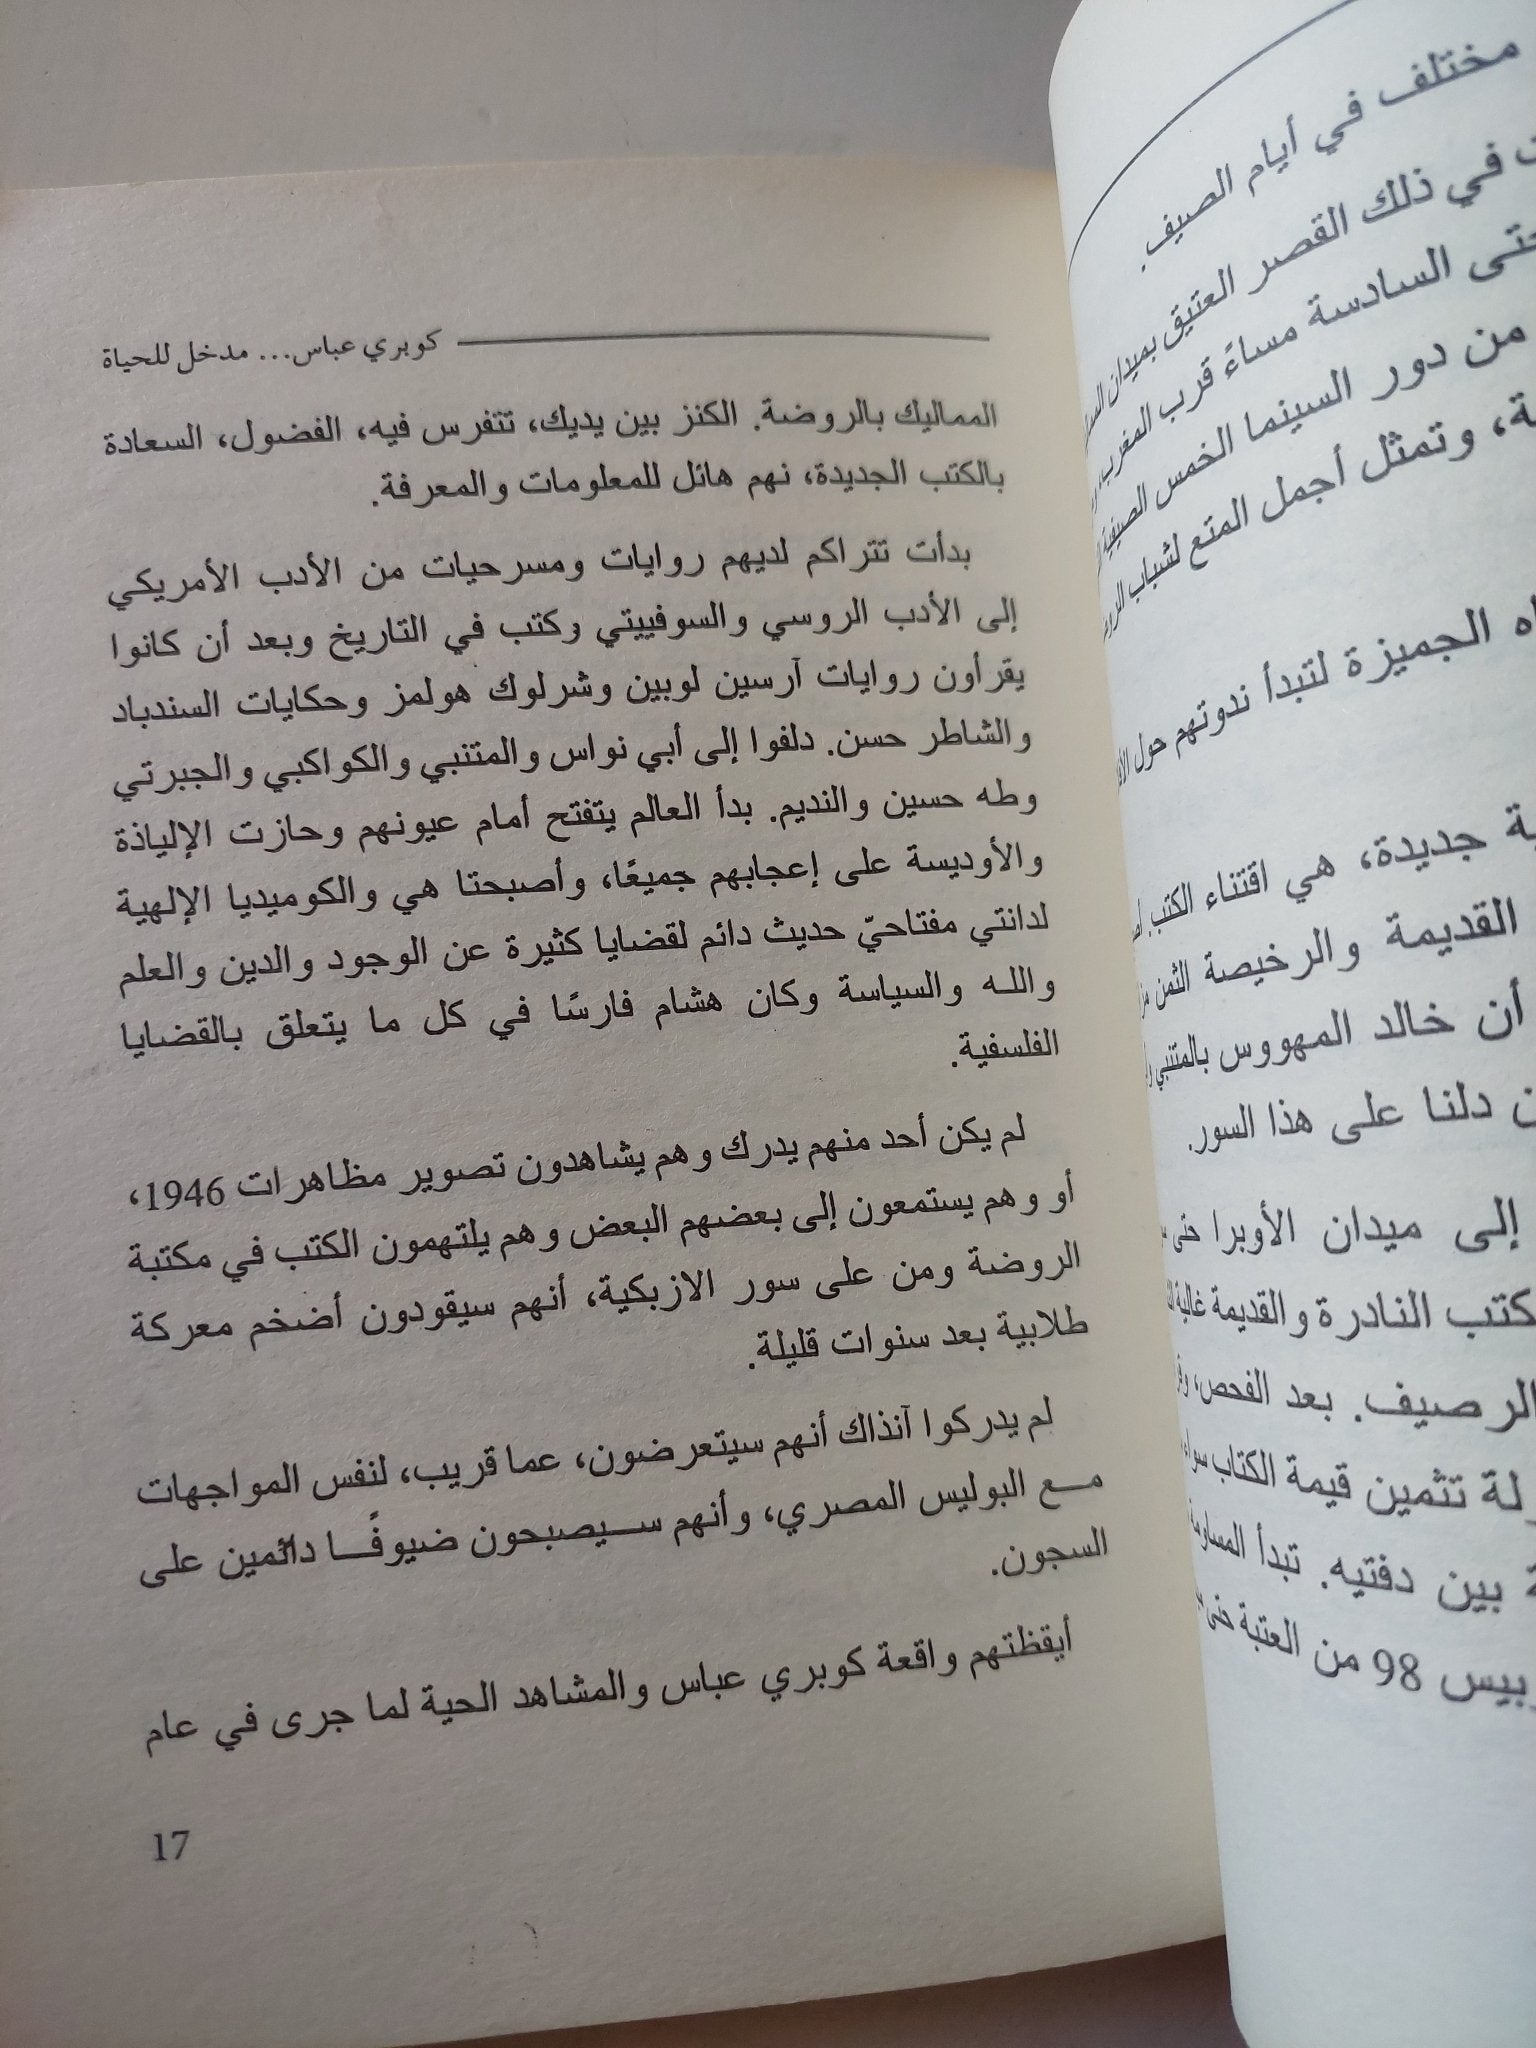 مختلف في أيام الصيف.
في ذلك القصر العتيق بميدان
السادسة مساءً قرب المغرب،
من دور السينما الخمس الصيفية
وتمثل أجمل المتع لشباب
الجميزة لتبدأ ندوتهم حول
جديدة، هي اقتناء الكتب.
القديمة والرخيصة الثمن
أن خالد المهووس بالمتنبي
دلنا على هذا السور.
إلى ميدان الأوبرا حتى
النادرة والقديمة غالية
الرصيف. بعد الفحص،
تثمين قيمة الكتاب سواء
بين دفتيه. تبدأ المساومة
98 من العتبة حتى
كوبري عباس... مدخل للحياة
المماليك بالروضة. الكنز بين يديك، تتفرس فيه، الفضول، السعادة
بالكتب الجديدة، نهم هائل للمعلومات والمعرفة.
بدأت تتراكم لديهم روايات ومسرحيات من الأدب الأمريكي
إلى الأدب الروسي والسوفييتي وكتب في التاريخ وبعد أن كانوا
يقرأون روايات آرسين لوبين وشرلوك هولمز وحكايات السندباد
والشاطر حسن. دلفوا إلى أبي نواس والمتنبي والكواكبي والجبرتي
وطه حسين والنديم. بدأ العالم يتفتح أمام عيونهم وحازت الإلياذة
والأوديسة على إعجابهم جميعًا، وأصبحتا هي والكوميديا الإلهية
لدانتي مفتاحيّ حديث دائم لقضايا كثيرة عن الوجود والدين والعلم
والله والسياسة وكان هشام فارسًا في كل ما يتعلق بالقضايا
الفلسفية.
لم يكن أحد منهم يدرك وهم يشاهدون تصوير مظاهرات 1946،
أو وهم يستمعون إلى بعضهم البعض وهم يلتهمون الكتب في مكتبة
الروضة ومن على سور الازبكية، أنهم سيقودون أضخم معركة
طلابية بعد سنوات قليلة.
لم يدركوا آنذاك أنهم سيتعرضون، عما قريب، لنفس المواجهات
مع البوليس المصري، وأنهم سيصبحون ضيوفًا دائمين على
السجون.
أيقظتهم واقعة كوبري عباس والمشاهد الحية لما جرى في عام
17